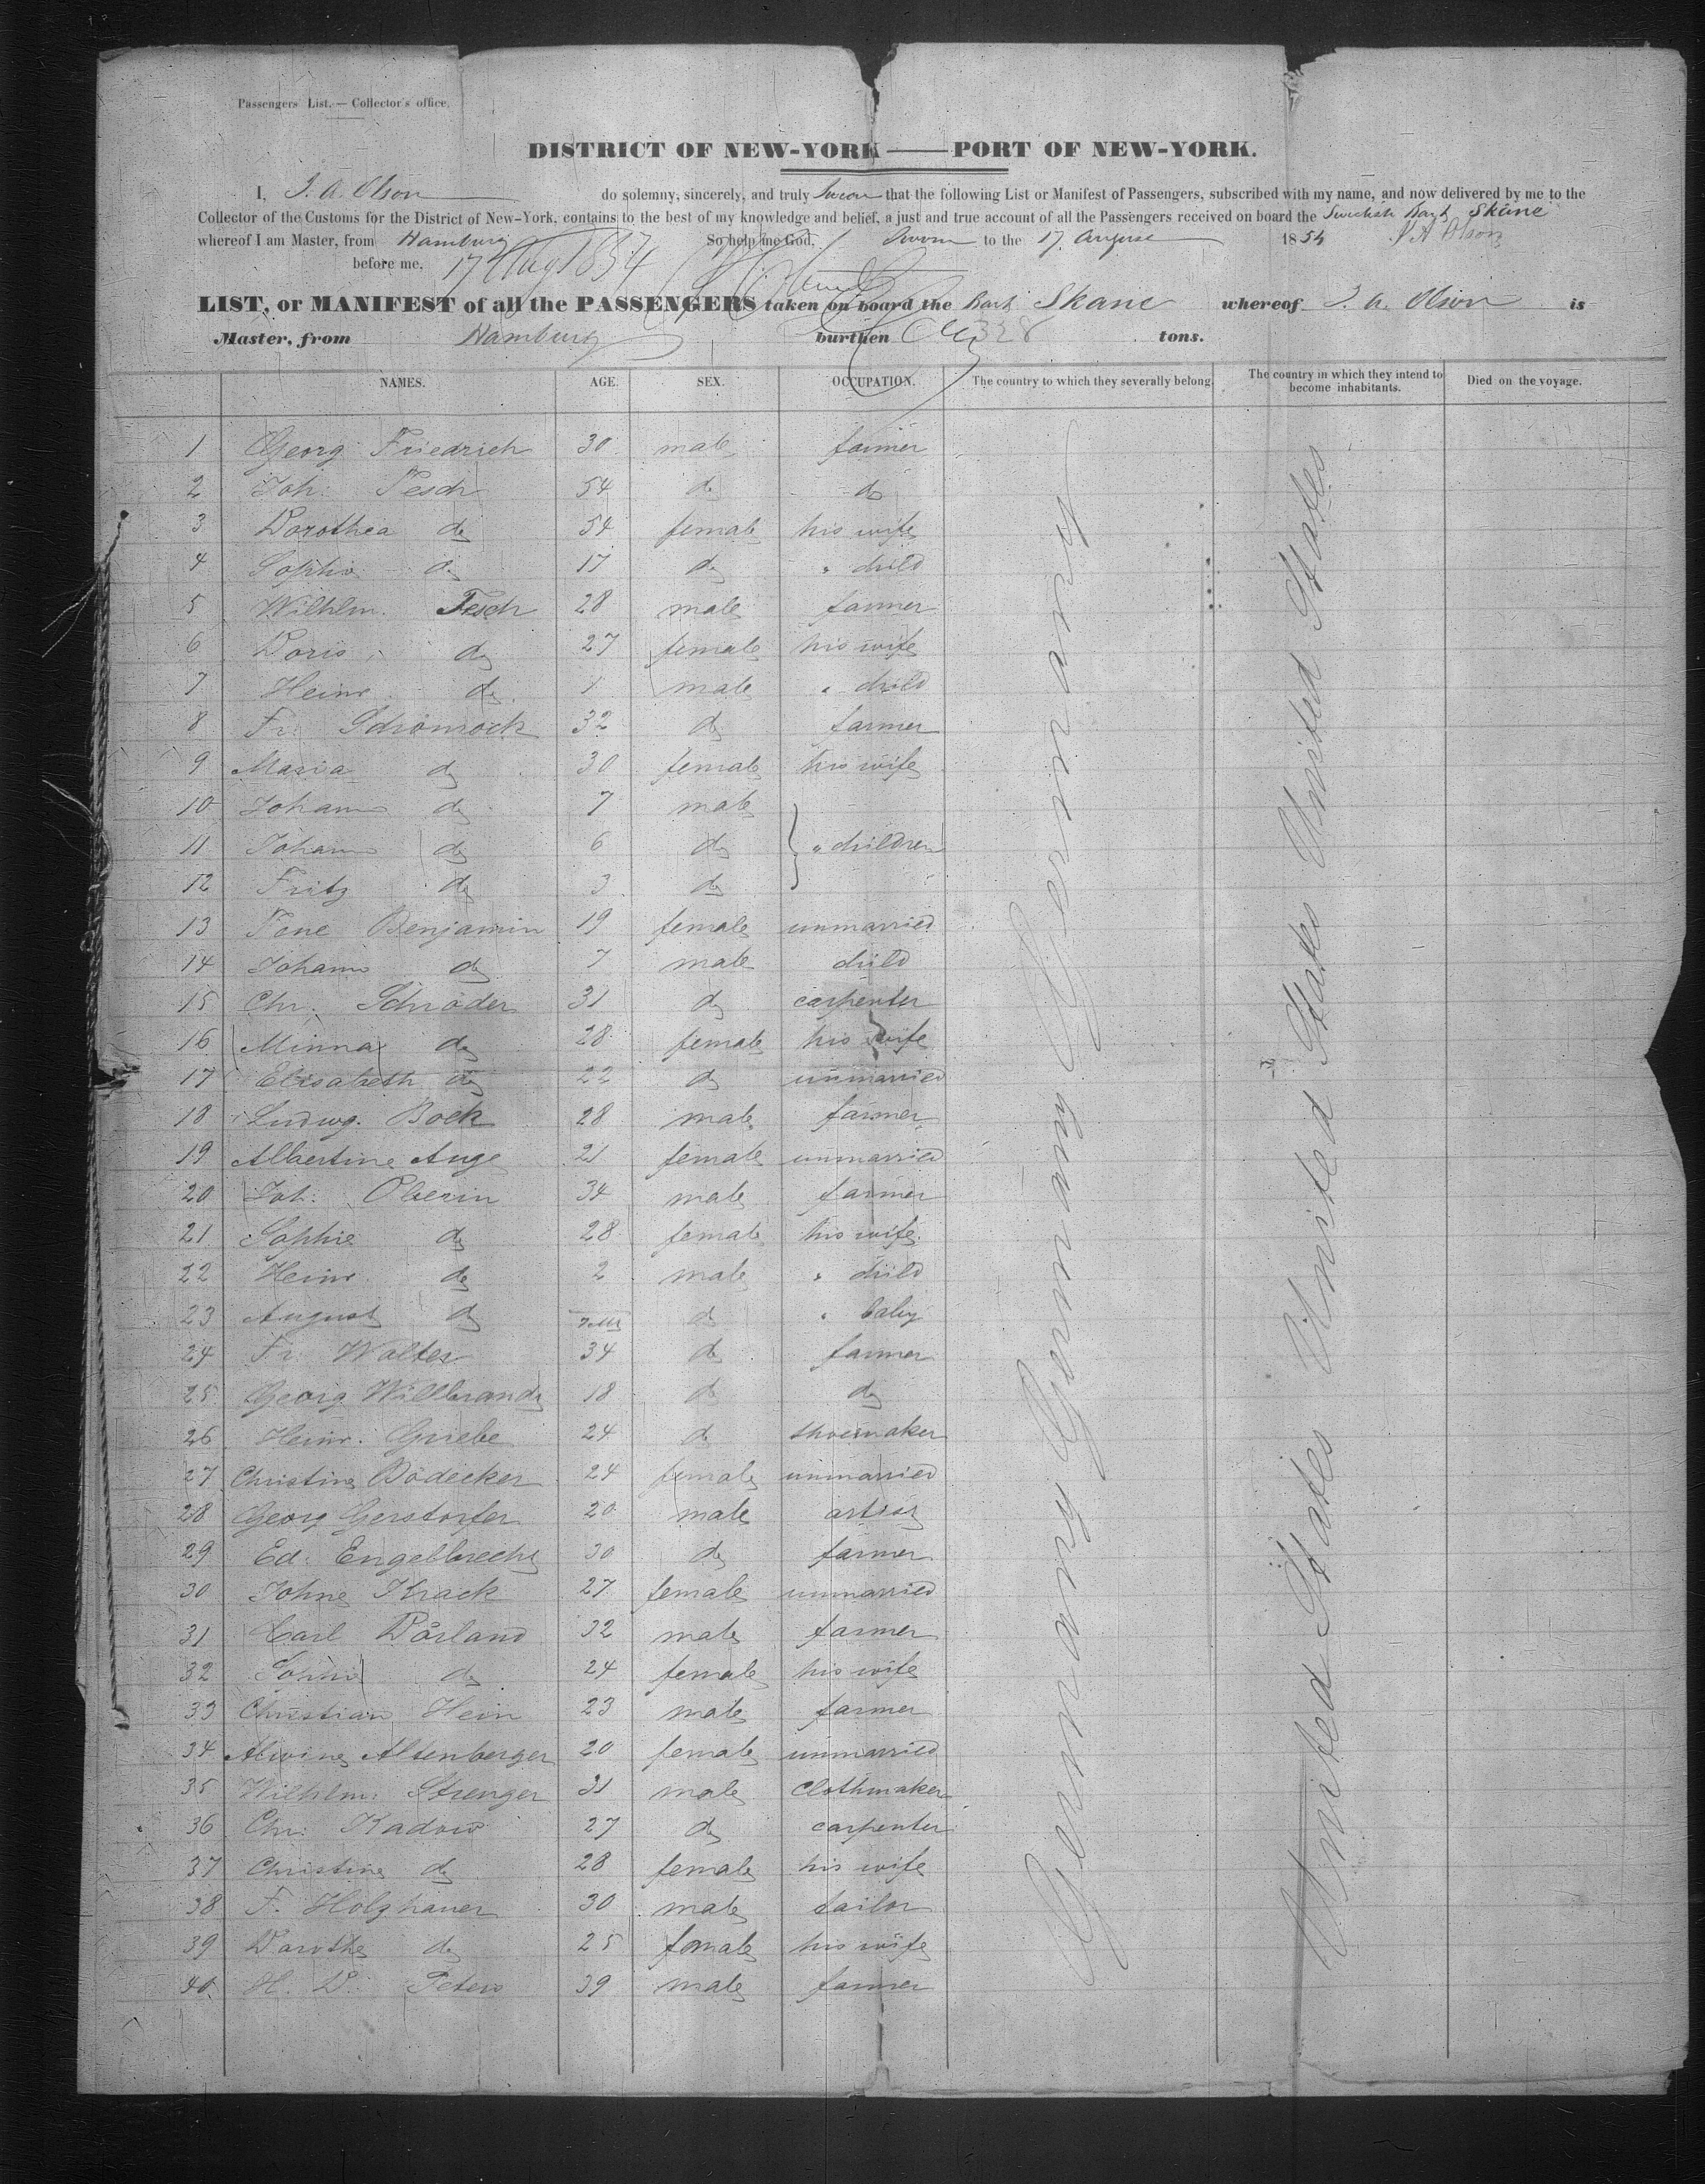 Passengers List.— Collector's office.
DISTRICT OF NEW-YORK —— PORT OF NEW-YORK.
I, J. A. Olson do solemny, sincerely, and truly Swear that the following List or Manifest of Passengers, subscribed with my name, and now delivered by me to the
Collector of the Customs for the District of New-York, contains to the best of my knowledge and belief, a just and true account of all the Passengers received on board the Swedish Bark Skane
whereof I am Master, from Hamburg So help me God. Sworn to the 17 August 1854 J A Olson
before me, 17 Aug 1854
LIST, or MANIFEST of all the PASSENGERS taken on board the Bark Skane whereof J. A. Olson is
Master, from Hamburg burthen 328 tons.
NAMES. AGE. SEX. OCCUPATION. The country to which they severally belong. The country in which they intend to become inhabitants. Died on the voyage.
1 Georg Friedrich 30 male farmer
2 Joh. Tesch 54 do do
3 Dorothea do 54 female his wife
4 Sophie do 17 do " child
5 Wilhlm. Tesch 28 male farmer
6 Doris do 27 female his wife
7 Heinr. do 1 male " child
8 Fr. Schönrock 32 do farmer
9 Maria do 30 female his wife
10 Johann do 7 male
11 Johann do 6 do " children
12 Fritz do 3 do
13 Fone Benjamin 19 female unmarried
14 Johann do 7 male child
15 Chr. Schröder 31 do carpenter
16 Minna do 28 female his wife
17 Elisabeth do 22 do unmarried
18 Ludwg. Boek 28 male farmer
19 Albertine Auge 21 female unmarried
20 Joh. Oberin 34 male farmer
21 Sophie do 28 female his wife
22 Heinr. do 2 male " child
23 August do do " baby
24 Fr. Walter 34 do farmer
25 Georg Willbrandt 18 do do
26 Heinr. Griebe 24 do shoemaker
27 Christine Bödecker 24 female unmarried
28 Georg Gerstorfer 20 male artist
29 Ed. Engelbrecht 30 do farmer
30 Johne Krack 27 female unmarried
31 Carl Dörland 32 male farmer
32 Sophie do 24 female his wife
33 Christian Hein 23 male farmer
34 Alwine Altenberger 20 female unmarried
35 Wilhlm. Strenger 31 male Clothmaker
36 Chr. Kadow 27 do carpenter
37 Christine do 28 female his wife
38 F. Holzhauer 30 male tailor
39 Dorothe do 25 female his wife
40 H. D. Peters 39 male farmer
Germany Germany Germany
United States United States United States